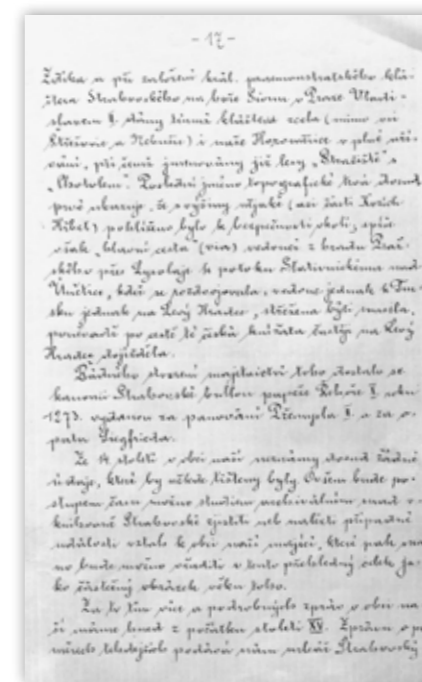 - 17 -
Žitika a při založení král. praemonstratského klá-
štera Strahovského na hoře Sionu v Praze Vladi-
slavem II. dány témuž klášteru zcela (mimo vsi
Střešovic a Nebušic) i naše Horoměřice v plné uží-
vání, při čemž jmenovány již lesy „Stražiště" a
„Chotolem". Poslední jméno topografické trvá dosud,
prvé ukazuje, že s výšiny nějaké (asi části Kozích
Hřbet) pohlíženo bylo k bezpečnosti okolí, spíše
však „hlavní cesta" (via) vedoucí z hradu Praž-
ského přes Lysolaje k potoku Statenickému nad
Únětice, kdež se rozdvojovala, vedouc jednak k
jednak na Levý Hradec, střežena býti musela,
poněvadž po cestě té česká knížata často na Levý
Hradec dojížděla.
Řádného stvrzení majetnictví toho dostalo se
kanonii Strahovské bullou papeže Řehoře X. roku
1273. vydanou za panování Přemysla II. a za o-
pata Siegfrieda.
Ze 14 století o obci naší neznámy dosud žádné
údaje, které by někde tištěny byly. Ovšem bude po-
stupem času možno studiem archivalním snad v
knihovně Strahovské zjistiti neb nalézti případné
události vztahs k obci naší mající, které pak sna-
no bude možno vřaditi v tento přehledný celek ja-
ko částečný obrázek věku toho.
Za to tím více a podrobných zpráv o obci na-
ší máme hned z počátku století XV. Zprávu o po-
měrech tehdejších podává nám urbář Strahovský